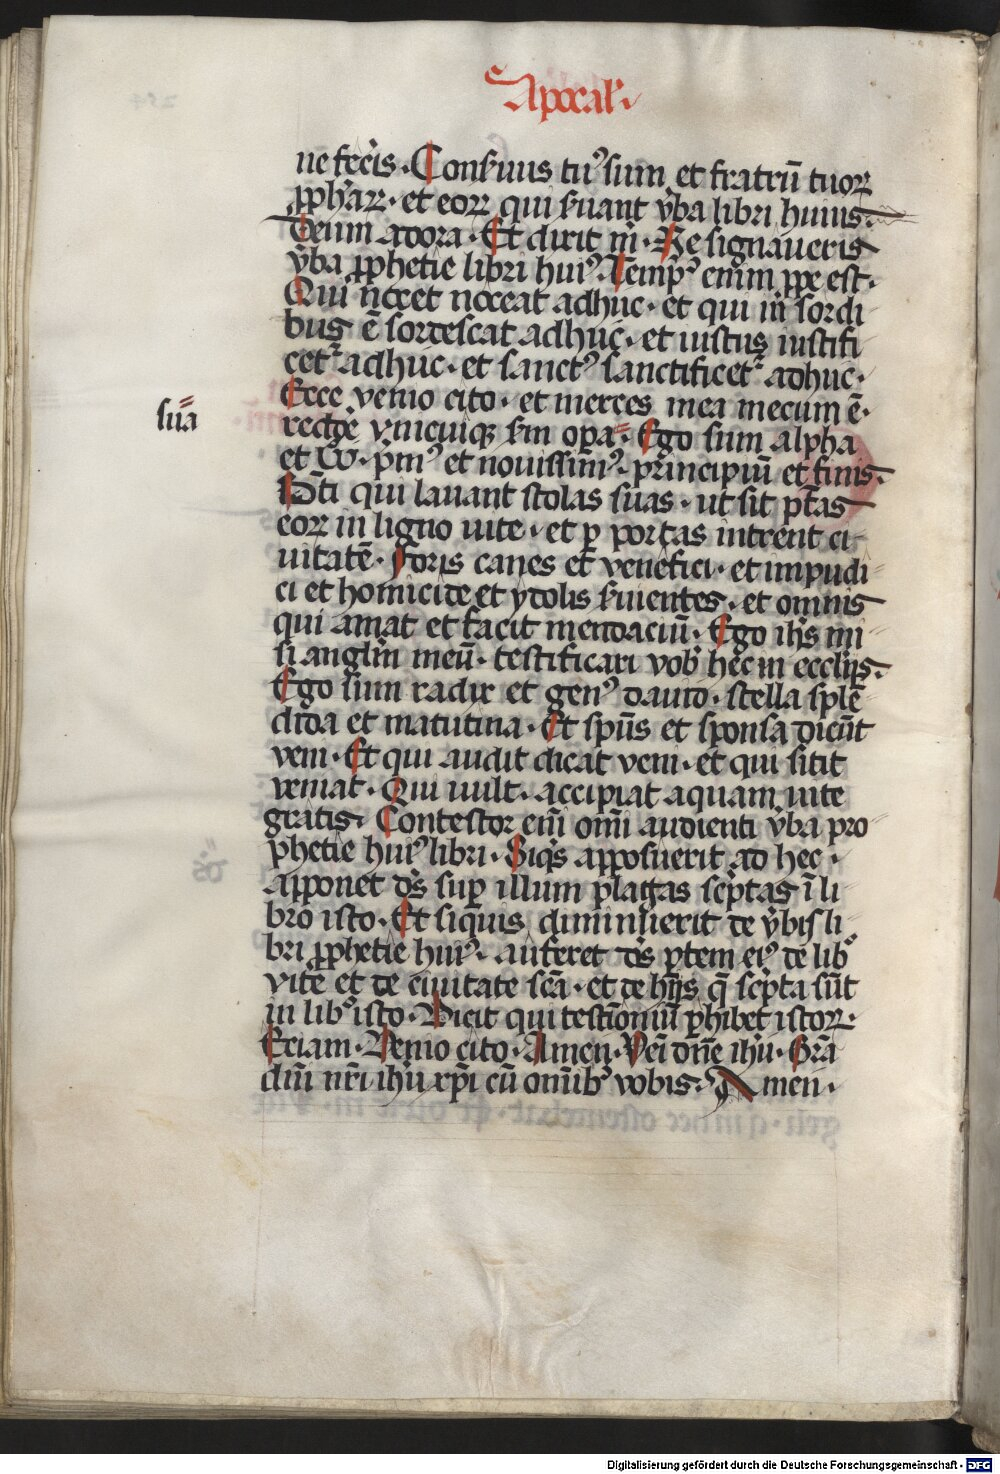 Apocal'
ne fec̾is. Conẜuus tu᾽ sum et fratrū tuoꝝ
ꝓph̾aꝝ. et eoꝝ qui ẜuant ỽba libri huius.
Deum adora. Et dixit m̄. Ne signaueris
ỽba ꝓphetie libri hui᾽. Temp᾽ enim ꝓpe est.
Qui nocet noceat adhuc. et qui in sordi
bus ē sordescat adhuc. et iustus iustifi
cet᷑ adhuc. et sanct᾽ sanctificet᷑ adhuc.
Ecce venio cito. et merces mea mecum ē.
reddẻ vnicuiqꝫ ẜm oꝑa. Ego sum alpha
sūa
et ω. pͥm᾽ et nouissim᾽. principiū et finis.
Bt̄i qui lauant stolas suas. ut sit pt̄as
eoꝝ in ligno uite. et ꝑ portas intrent ci
uitatē. Foris canes et venefici. et impudi
ci et homicide et ydolis ẜuientes. et omnis
qui amat et facit mendaciū. Ego ih̄s mi
si angl̄m meū. testificari vob̾ hec in eccl̄ijs.
Ego sum radix et gen᾽ dauid. stella splē
dida et matutina. Et sp̄us et sponsa dicūt
veni. Et qui audit dicat veni. et qui sitit
veniat. Qui uult. accipiat aquam uite
gratis. Contestor em̄ om̄i audienti ỽba pro
phetie hui᾽ libri. Siqͥs apposuerit ad hec.
apponet d̄s suꝑ illum plagas scͥptas ī li
bro isto. Et siquis diminuerit de ỽbis li
bri ꝓphetie hui᾽. auferet d̄s ꝑtem ei᾽ de libͦ
vite et de ciuitate scā. et de hijs q̄ scͥpta sūt
in libͦ isto. Dicit qui testīoniū ꝑhibet istoꝝ.
Eciam. Venio cito. Amen. Veī dn̄e ih̄u. Gr̄a
dn̄i nr̄i ih̄u xp̄i cū omībꝫ vobis. Amen.
Digitalisierung gefördert durch die Deutsche Forschungsgemeinschaft - DFG